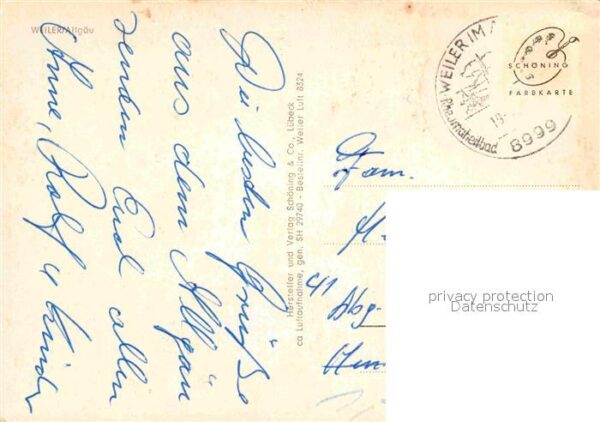 WEILER/Allgäu
Die besten Grüße
aus dem Allgäu
senden Euch allen
Anne, Rolf u. Kinder
Hersteller und Verlag Schöning & Co., Lübeck
ca Luftaufnahme, gen. SH 29740 - Bestellnr. Weiler Luft 8324
WEILER IM
8999
SCHÖNING
FARBKARTE
Fam.
41
privacy protection
Datenschutz